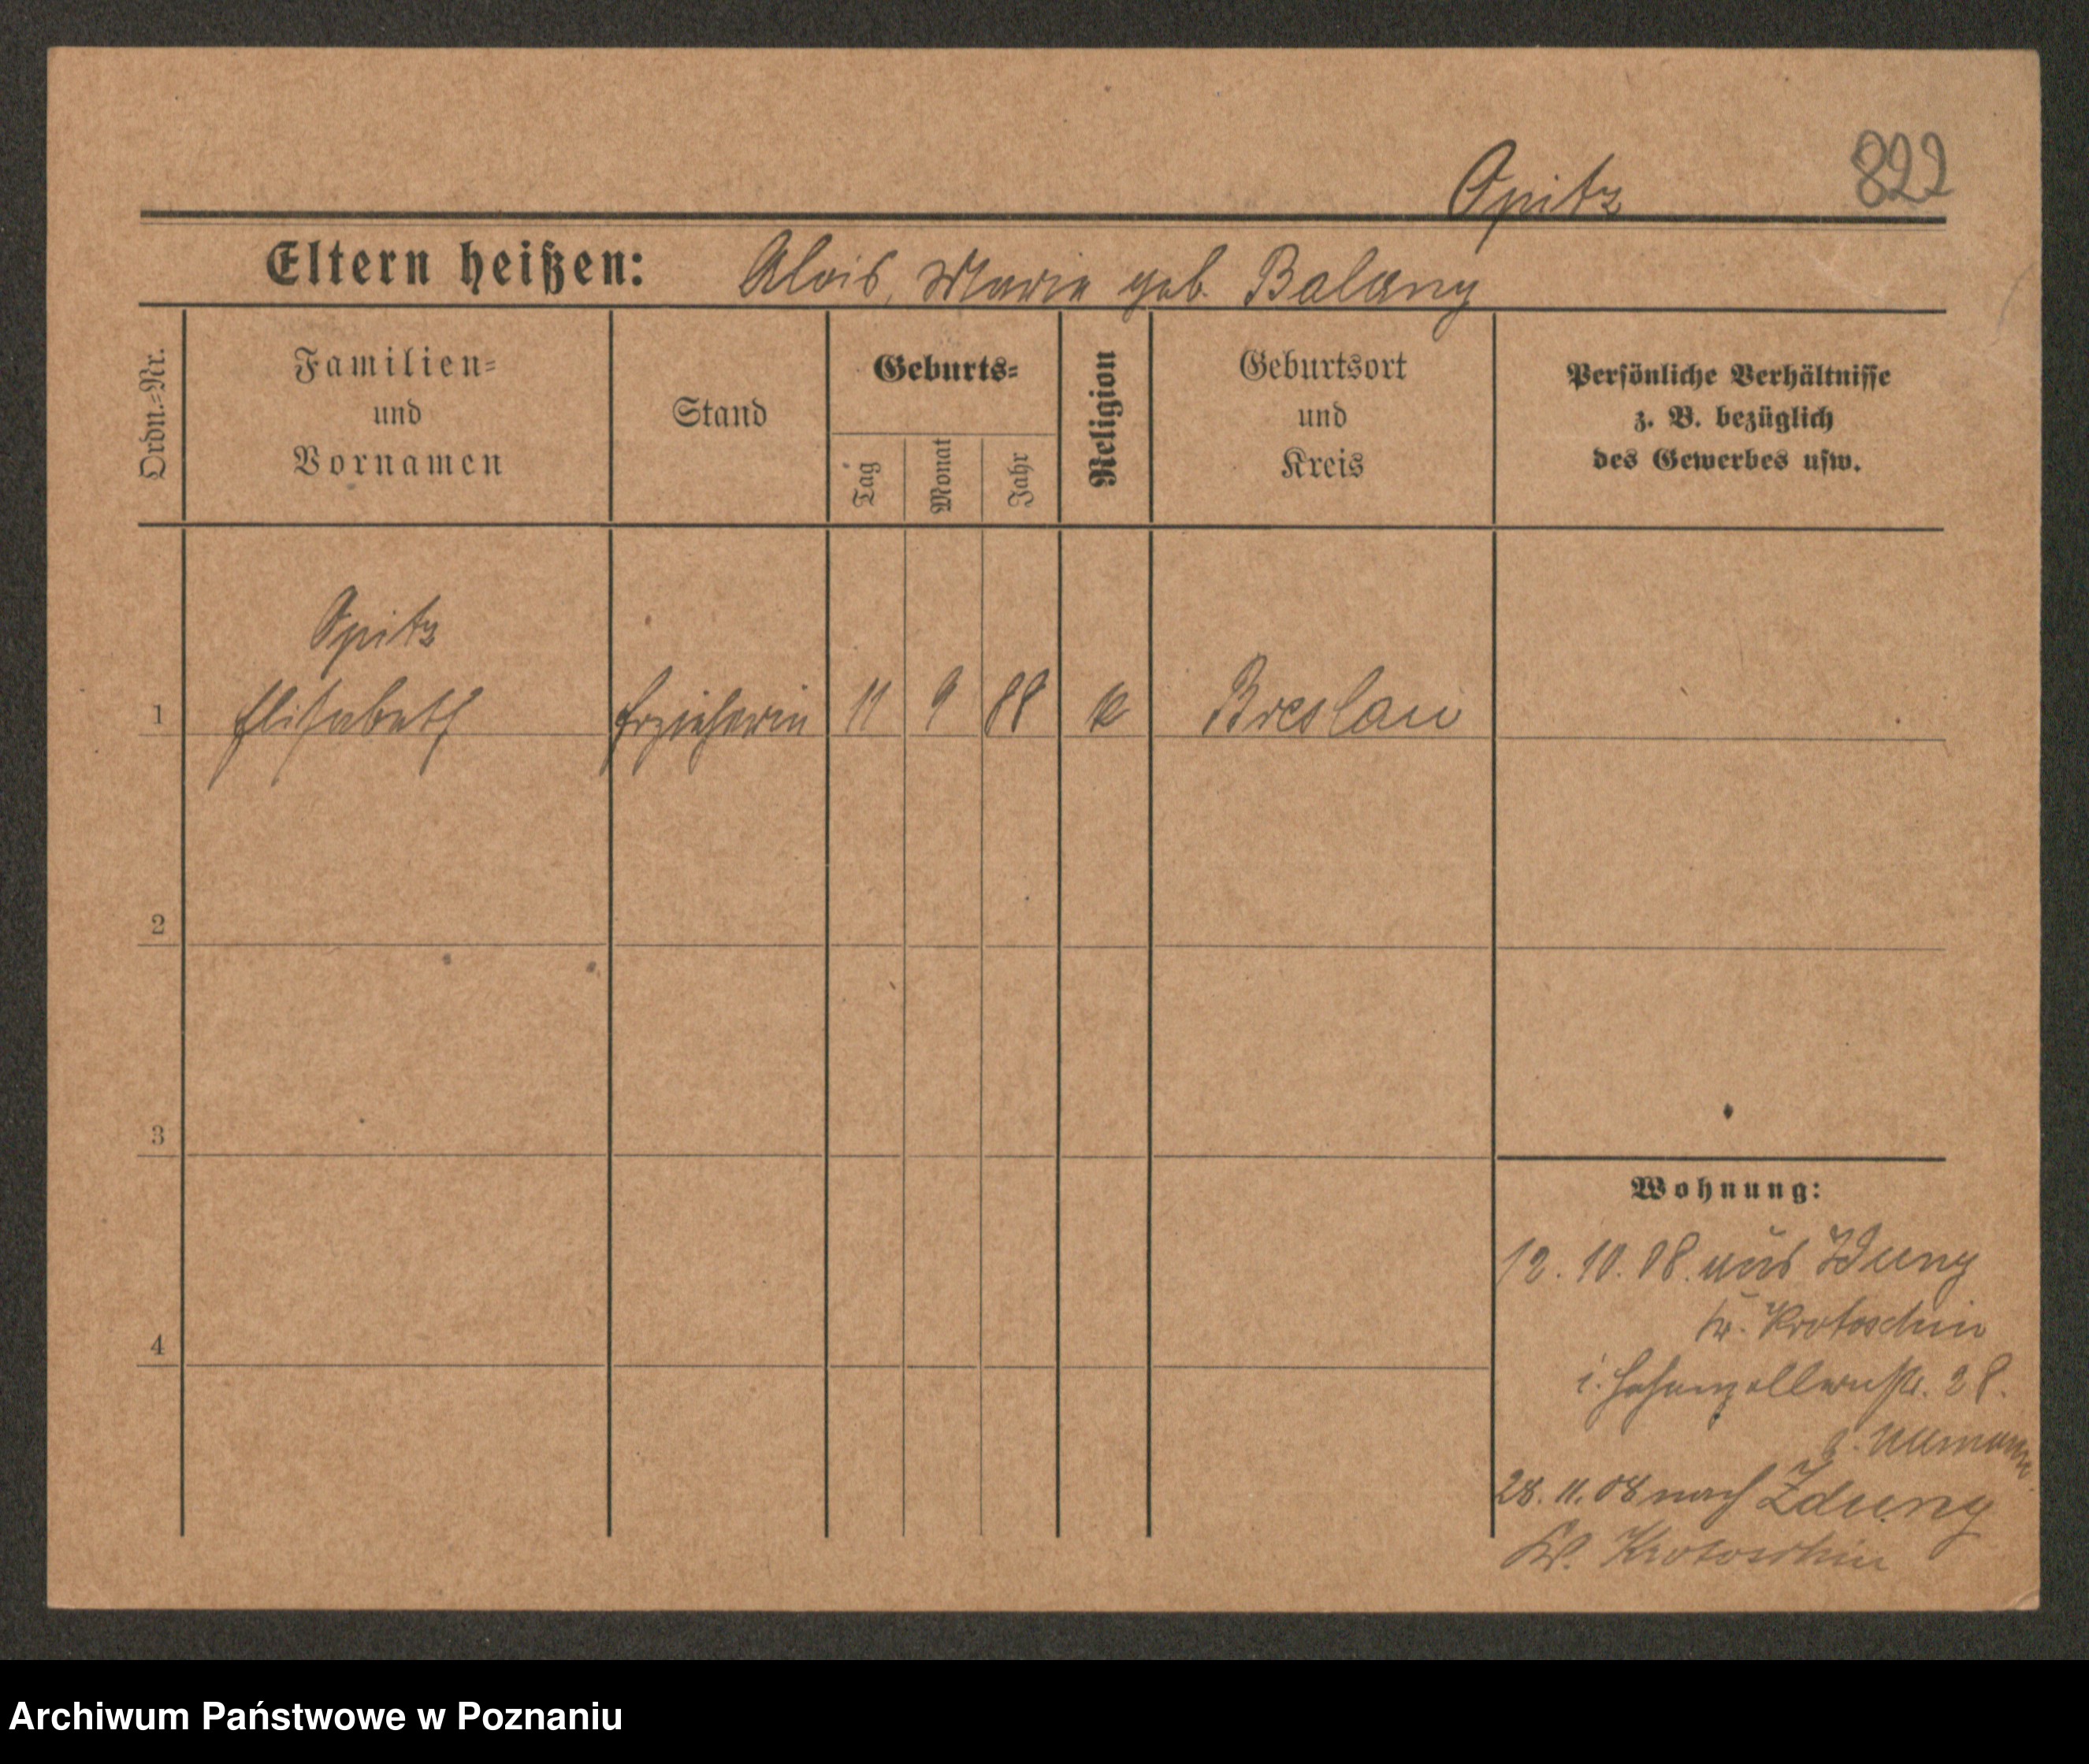 822
Opitz
Eltern heißen: Alois, Marie geb. Balany
Ordn.-Nr.
Familien-
und
Vornamen
Stand
Geburts-
Tag
Monat
Jahr
Religion
Geburtsort
und
Kreis
Persönliche Verhältnisse
z. B. bezüglich
des Gewerbes usw.
Opitz
1 Elisabeth Erzieherin 11 9 88 k Breslau
2
3
4
Wohnung:
12. 10. 08. aus Zduny
Kr. Krotoschin
i. Hohenzollernstr. 28.
b. Ullmann
28. 11. 08 nach Zduny
Kr. Krotoschin
Archiwum Państwowe w Poznaniu